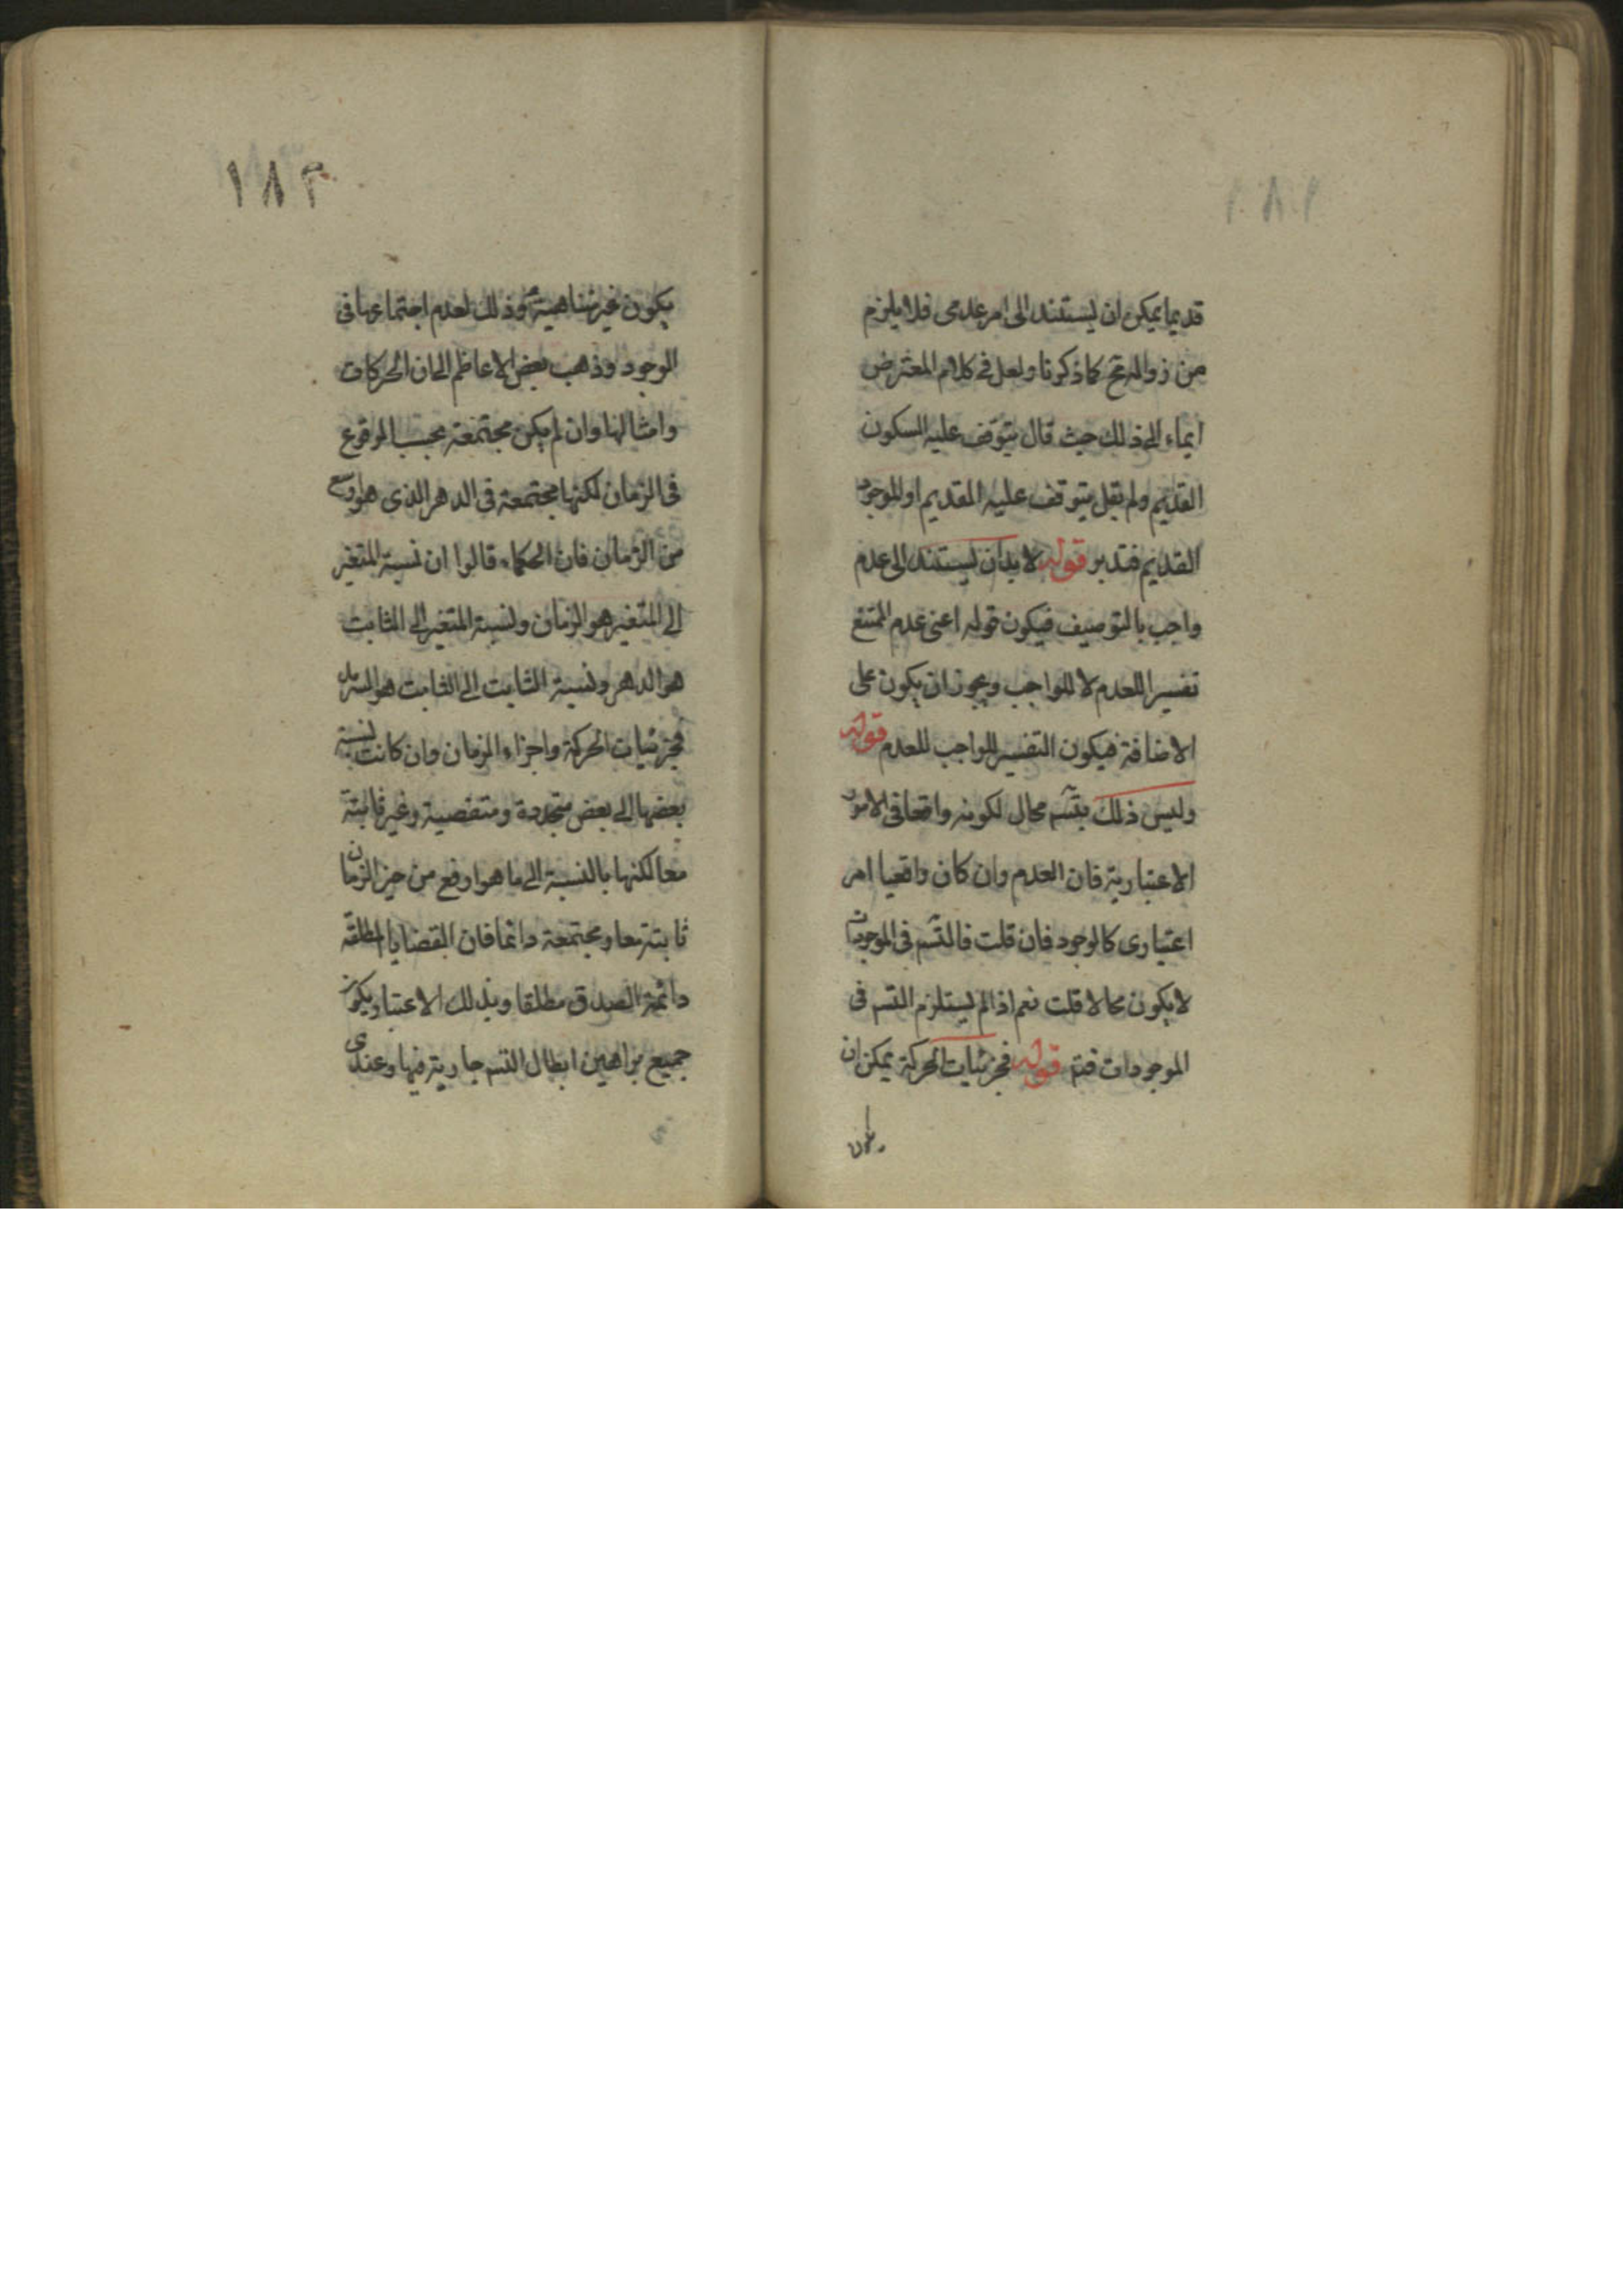 ١٨٢
قديما يمكن ان يستند الى امر عدمى فلا يلزم
من زواله مح كما ذكرنا ولعل فى كلام المعترض
ايماء الى ذلك حيث قال يتوقف عليه السكون
القديم ولم يقل يتوقف عليه القديم او الموجود
القديم فتدبر قوله لابد ان يستند الى عدم
واجب بالتوصيف فيكون قوله اعنى عدم الممتنع
تفسيرا للعدم لا للواجب ويجوز ان يكون على
الاضافة فيكون التفسير للواجب للعدم قوله
وليس ذلك بتسم محال لكونه واقعا فى الامور
الاعتبارية فان العدم وان كان واقعيا امر
اعتبارى كالوجود فان قلت فالتسم فى الموجودات
لا يكون محالا قلت نعم اذا لم يستلزم التسم فى
الموجودات فتم قوله فجزئيات الحركة يمكن ان
يكون
١٨٣
يكون غير متناهية وذلك لعدم اجتماعها فى
الوجود وذهب بعض الاعاظم الى ان الحركات
وامثالها وان لم يكن مجتمعة بحسب الوقوع
فى الزمان لكنها مجتمعة فى الدهر الذى هو اوسع
من الزمان فان الحكماء قالوا ان نسبة المتغير
الى المتغير هو الزمان ونسبة المتغير الى الثابت
هو الدهر ونسبة الثابت الى الثابت هو السرمد
فجزئيات الحركة واجزاء الزمان وان كانت نسبة
بعضها الى بعض متجددة ومتقضية وغير ثابتة
معا لكنها بالنسبة الى ما هو ارفع من حيز الزمان
ثابتة معا ومجتمعة دائما فان القضايا المطلقة
دائمة الصدق مطلقا وبذلك الاعتبار يكون
جميع براهين ابطال التسم جارية فيها وعندى